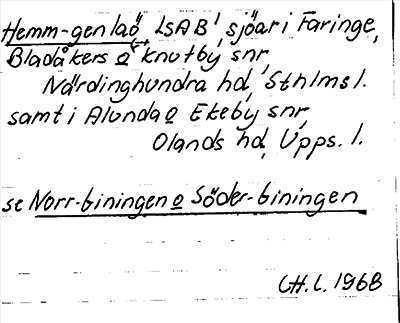 Hemm-genlaö, LSAB' sjöar i Faringe,
Bladåkers o Knutby snr,
Närdinghundra hd, Sthlms l.
samt i Alunda o Ekeby snr,
Olands hd, Upps. l.
se Norr-biningen o Söder-biningen
CH.L. 1968